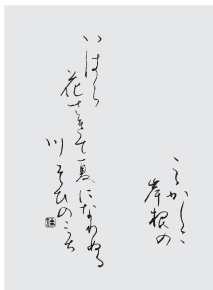 こゝかしこ
岸根の
いはら
花さきて夏になりぬる
川そひのみち